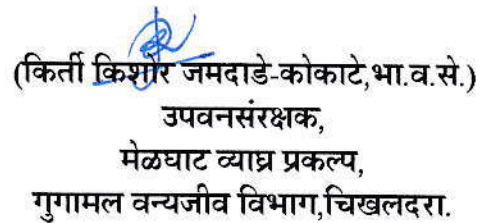 (किर्ती किशोर जमदाडे-कोकाटे,भा.व.से.)
उपवनसंरक्षक,
मेळघाट व्याघ्र प्रकल्प,
गुगामल वन्यजीव विभाग,चिखलदरा.